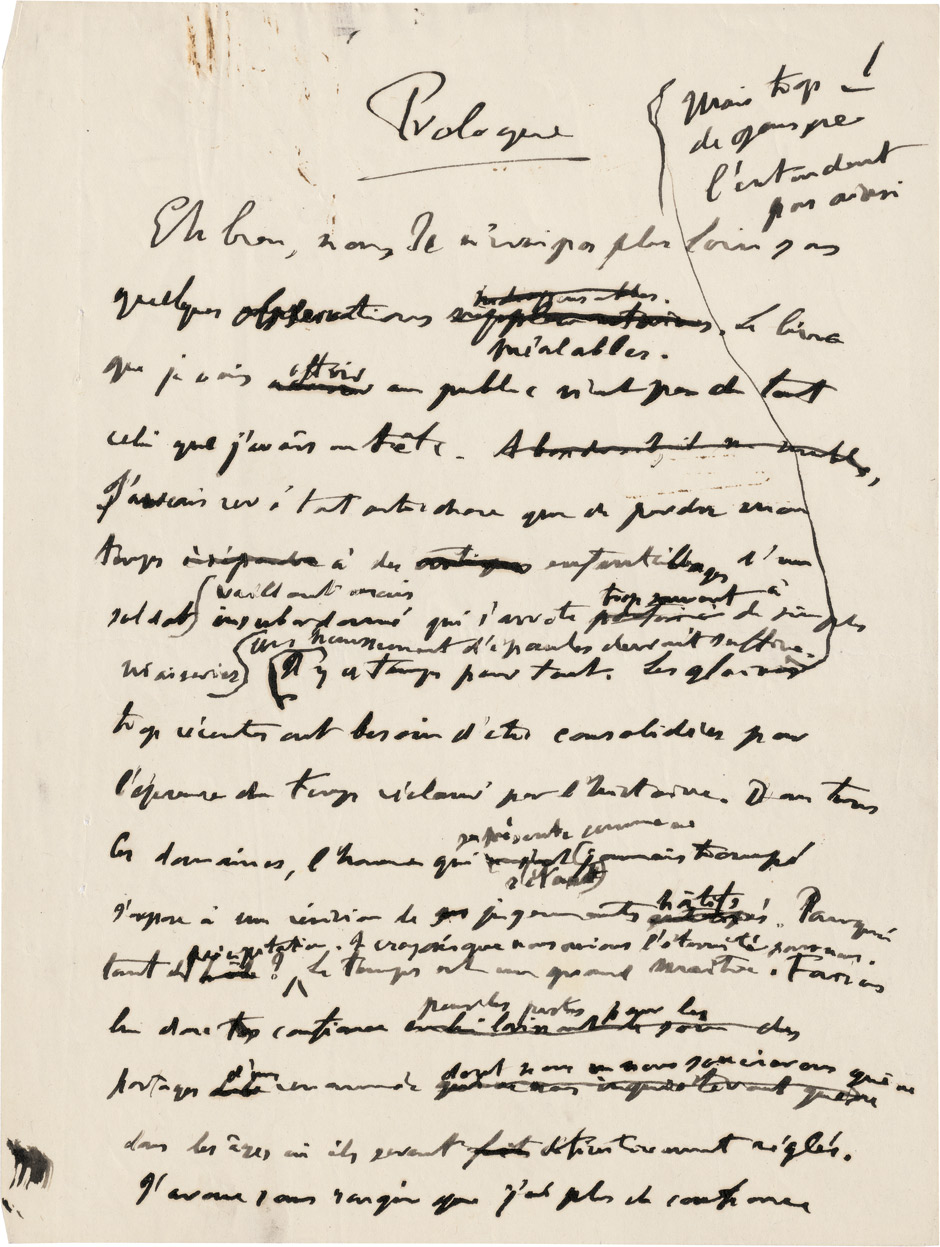 Prologue
Mais trop
de gens ne
l'entendent
pas ainsi !
Eh bien, non, Je n'irai pas plus loin sans
quelques observations
indispensables.
supplémentaires. Le livre
préalables.
que je vais
offrir
au public n'est pas du tout
celui que j'avais en tête. Abondassent
J'avais rêvé à tout autre chose que de perdre mon
temps à répondre à des enfantillages d'un
vaillant mais
soldat insubordonné qui s'arrête
trop souvent à
de simples
Un haussement d'épaules devrait suffire.
niaiseries Il y a temps pour tout. Les gloires
trop récentes ont besoin d'être consolidées par
l'épreuve du temps réclamé par l'histoire. Dans tous
les domaines, l'homme qui
se présente comme ne
s'étant
jamais trompé
s'oppose à une révision de ses jugements
hâtifs
Pourquoi
précipitation. A croire que nous avions l'éternité pour nous.
tant de hâte ? Le temps est un grand maître. Faisons
lui donc confiance
pour les parts
pour les
des
partages
d'une
renommée
dont nous ne nous soucierons guère
dans les âges où ils seront définitivement réglés.
J'avoue sans range que j'ai plus de confiance